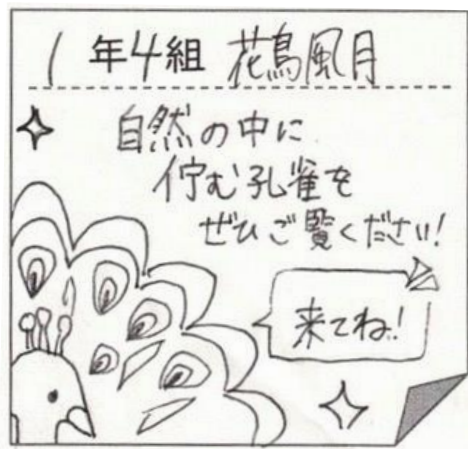 1年4組 花鳥風月
自然の中に
佇む孔雀を
ぜひご覧ください!
来てね!